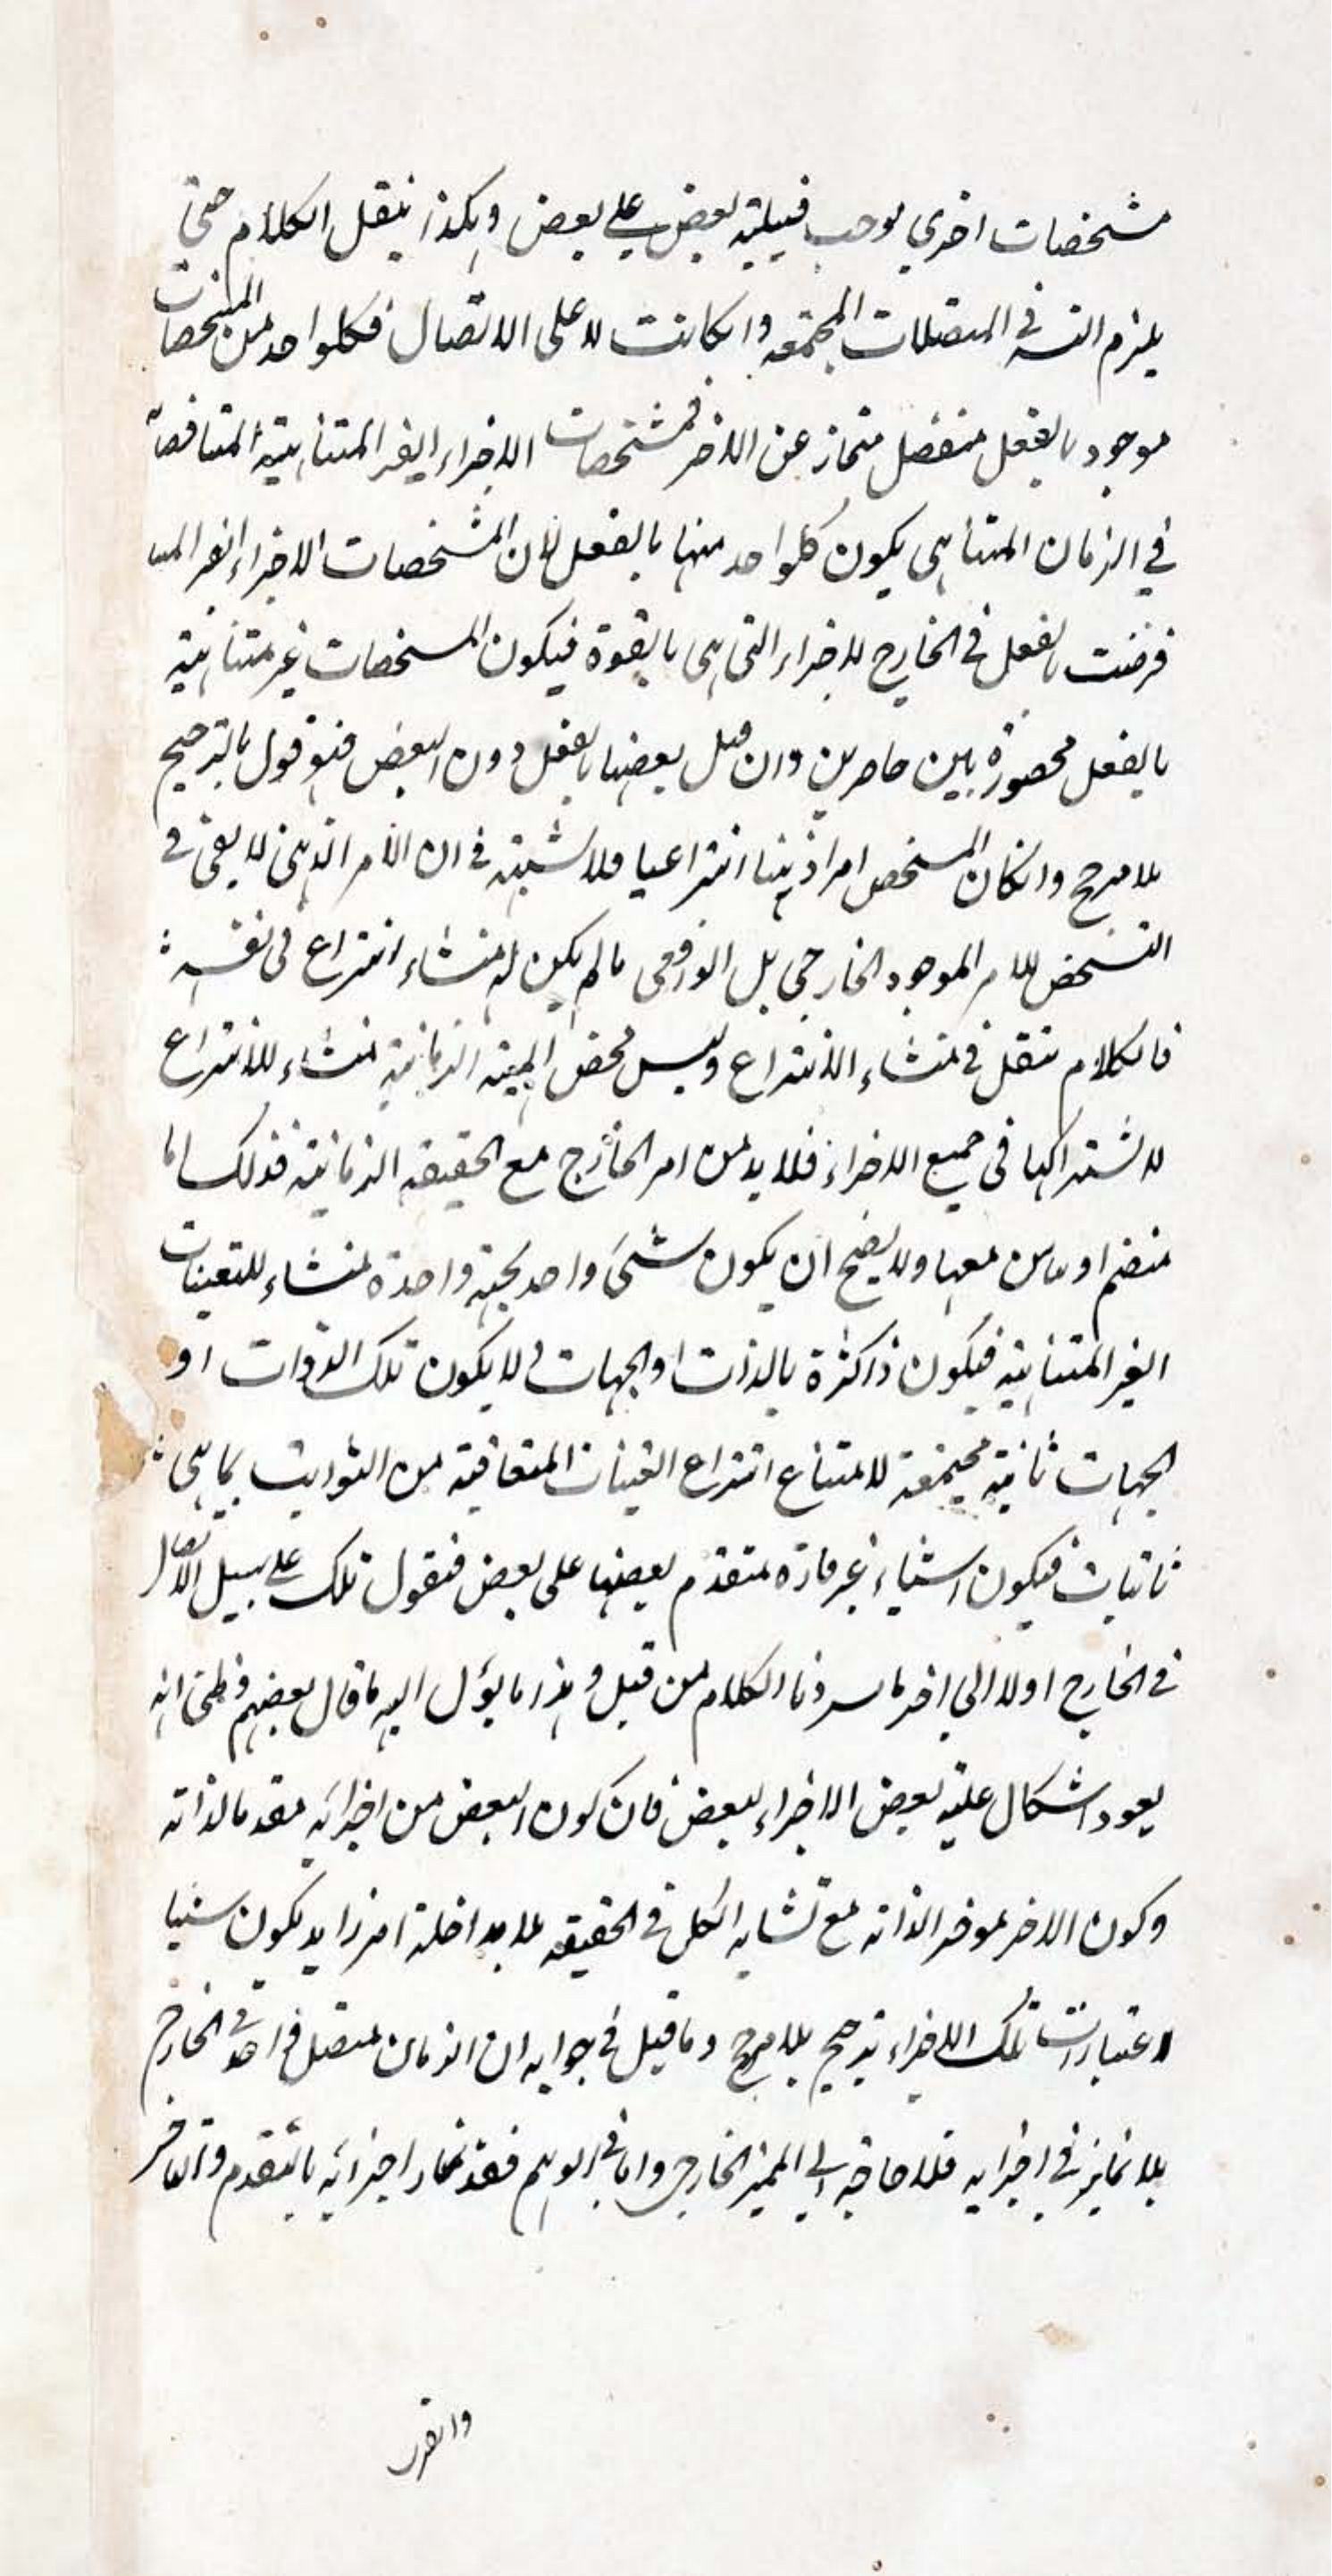 مشخصات اخري يوجب قبيلية بعض على بعض وهكذا ينقل الكلام حتى
يلزم التسه في المتصلات المجتمعه وانكانت لا على الاتصال فكلواحد من المشخصات
موجود بالفعل منفصل منحاز عن الاخر فمشخصات الاجزاء الغير المتناهية المتناقصة
في الزمان المتناهى يكون كلواحد منها بالفعل لان المشخصات الاجزاء الغير المتنا
فرضت بالفعل في الخارج للاجزاء التى هى بالقوة فيكون المشخصات غير متناهية
بالفعل محصورة بين حاصرين وان قيل بعضها بالفعل دون البعض فهو قول بالترجيح
بلا مرجح وانكان المشخص امرا ذهنيا انتزاعيا فلا شبهة في ان الامر الذهنى لا يفى في
التشخص للامر الموجود الخارجي بل الواقعى مالم يكن له منشاء انتزاع فى نفسه
فالكلام ينقل في منشاء الانتزاع وليس محض المهية الزمانية منشاء للانتزاع
لاشتراكها فى جميع الاجزاء فلابد من امر الخارج مع الحقيقه الزمانية فذلك اما
منضم او مباين معها ولا يصح ان يكون شىء واحد بجهة واحدة منشاء للتعينات
الغير المتناهية فيكون ذا كثرة بالذات او الجهات و لا يكون تلك الذوات او
الجهات ثابتة مجتمعة لامتناع انتزاع التعينات المتعاقبة من الثوابت بما هى
ثابتات فيكون اشياء غير قارة متقدم بعضها على بعض فنقول تلك على سبيل الاتصال
في الخارج اولا الي اخر ما سردنا الكلام من قبل وهذا ما يؤل اليه ما قال بعضهم وظنى انه
يعود اشكال علية بعض الاجزاء لبعض فان كون البعض من اجزائه مقدما لذاته
وكون الاخر موخرا لذاته مع تشابه الكل في الحقيقه بلا مداخلة امر زايد يكون شيئا
اعتبارات تلك الاجزاء ترجيح بلا مرجح وما قيل في جوابه ان الزمان متصل واحد في الخارج
بلا تمايز في اجزايه فلا حاجة الي المميز الخارجى واما في الوهم فقد تمحاز اجزائه بالتقدم والتاخر